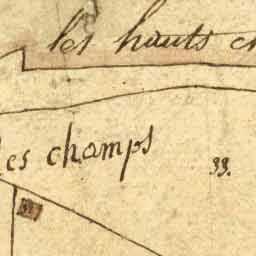 les hauts
les champs
33.